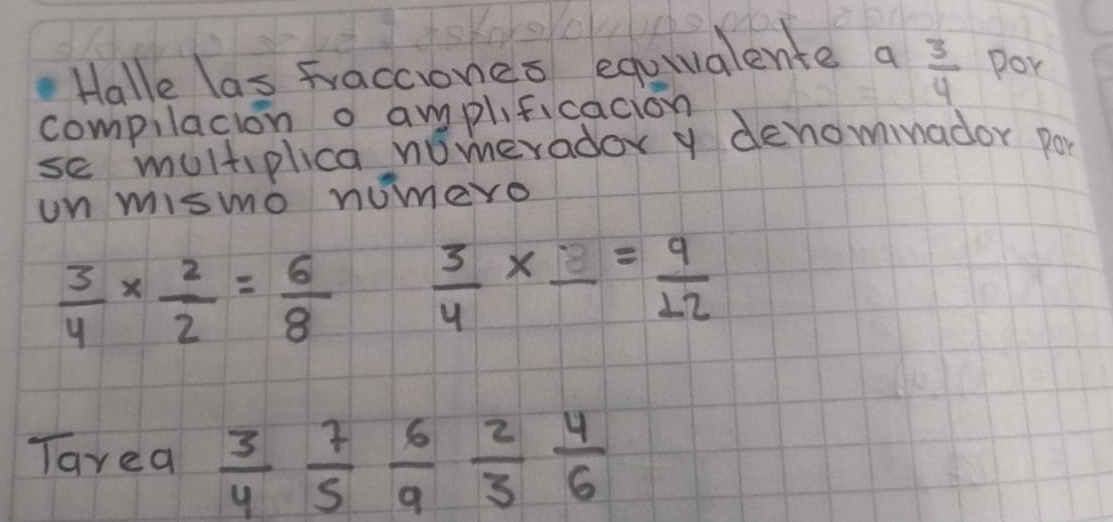 • Halle las fracciones equivalente a 3/4 por
compilación o amplificación
se multiplica número y denominador por
un mismo número
3/4 × 2/2 = 6/8 3/4 × 3/ = 9/12
Tarea 3/4 7/5 6/9 2/3 4/6